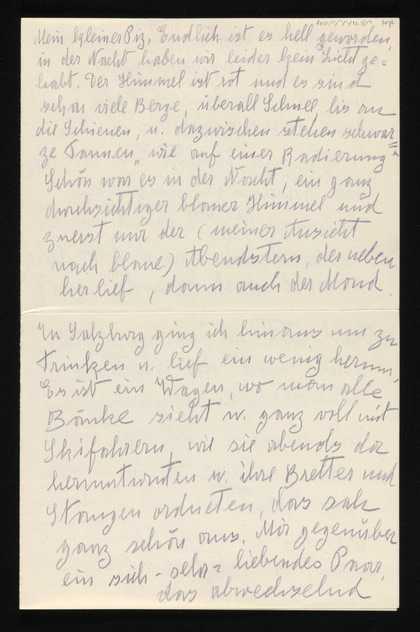 Mein kleiner Piz, Endlich ist es hell geworden,
in der Nacht haben wir leider kein Licht ge=
habt. Der Himmel ist rot und es sind
schon viele Berge, überall Schnee, bis an
die Schienen, u. dazwischen stehen schwar=
ze Tannen, wie auf einer Radierung
Schön war es in der Nacht, ein ganz
durchsichtiger blauer Himmel und
zuerst nur der (meiner Ansicht
nach blaue) Abendstern, der neben
her lief, dann auch der Mond.
In Salzburg ging ich hinaus um zu
Trinken u. lief ein wenig herum,
Es ist ein Wagen, wo man alle
Bänke sieht u. ganz voll mit
Skifahrern, wie sie abends da
herumturnten u. ihre Bretter und
Stangen ordneten, das sah
ganz schön aus. Mir gegenüber
ein sich - sehr = liebendes Paar,
das abwechselnd